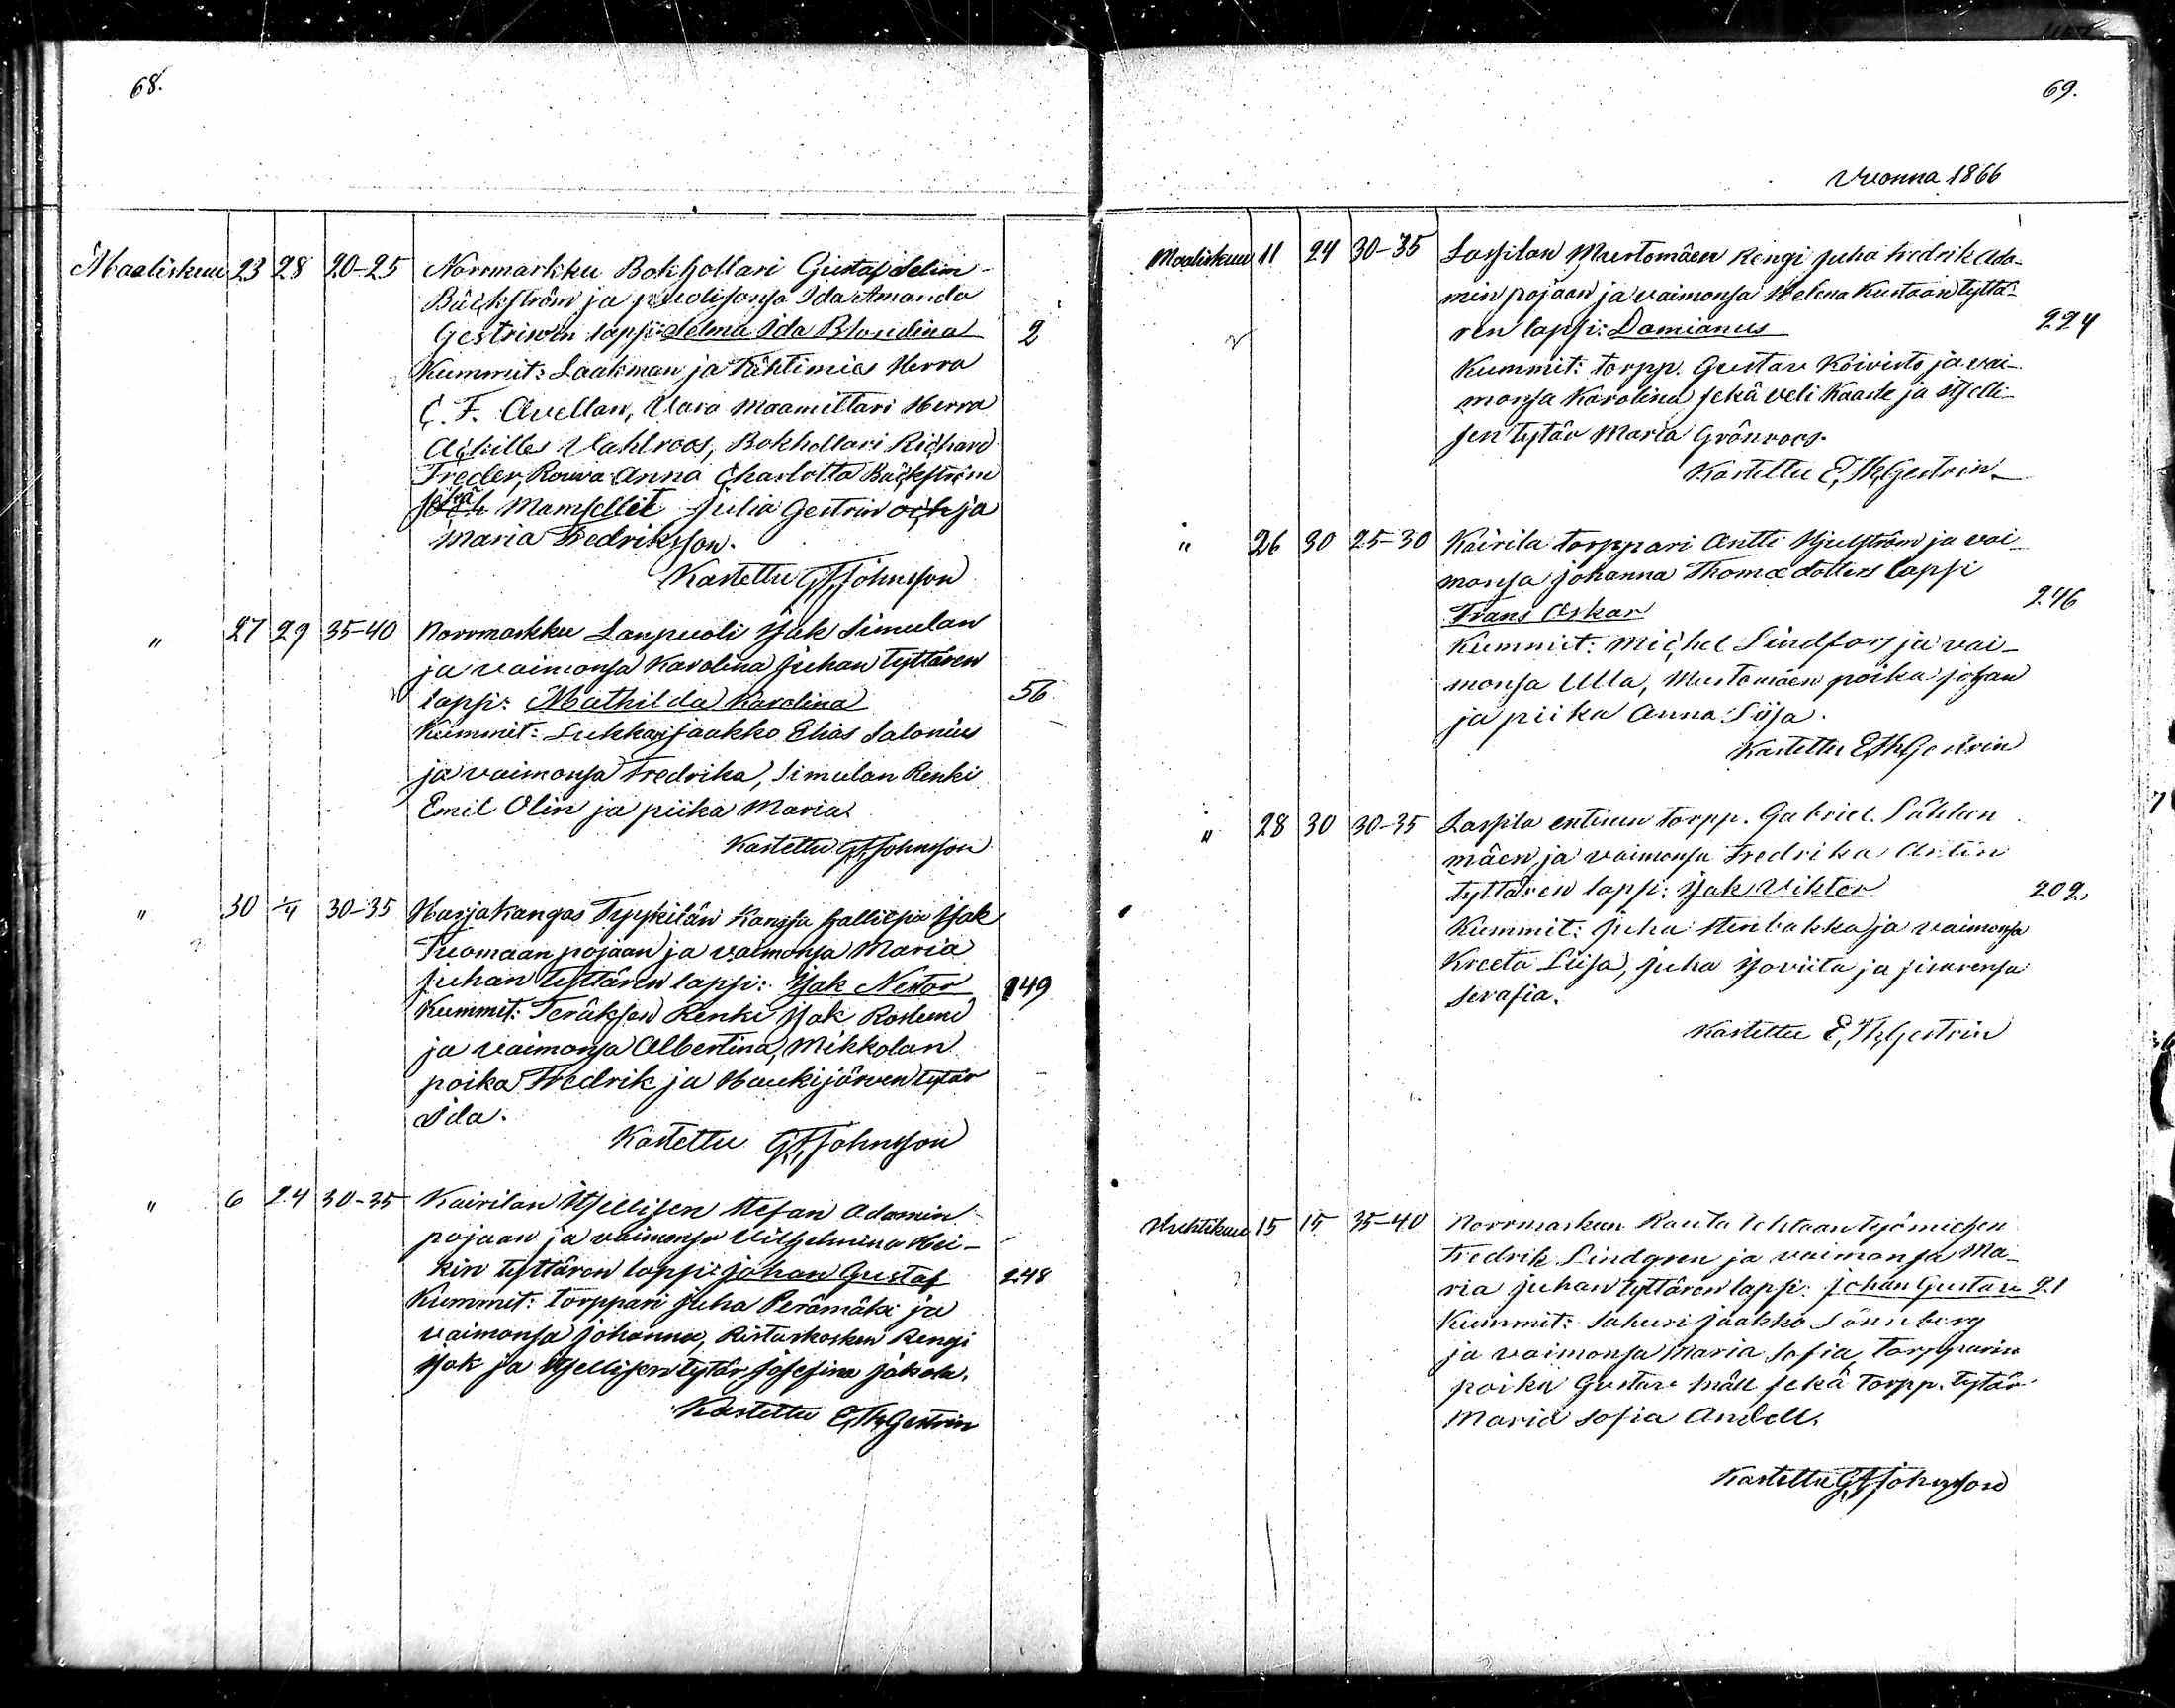 68.
Maaliskuu 23 28 20-25 Norrmarkku Bokhollari Gustaf Selim
Bäckström ja puolisonsa Ida Amanda
Gestrinin lapsi: Selma Ida Blondina 2
Kummit: Laakman ja Tähtimies Herra
C. F. Avellan, Vara Maamittari Herra
Achilles Vahlroos, Bokhollari Richard
Freder, Rouva Anna Charlotta Bäckström
sekä Mamsellit Julia Gestrin och ja
Maria Fredriksson.
Kastettu G.A. Johnsson
" 27 29 35-40 Norrmarkku Lanpuoli Isak Simulan
ja vaimonsa Karolina Juhan tyttären
lapsi: Mathilda Karolina 56
Kummit: Lukkari Jaakko Elias Salonius
ja vaimonsa Fredrika, Simulan Renki
Emil Olin ja piika Maria.
Kastettu G.A. Johnsson
" 30 1/4 30-35 Harjakangas Tyykilän Kanssa hallitsia Isak
Tuomaan pojaan ja vaimonsa Maria
Juhan tyttären lapsi: Isak Nestor 149
Kummit: Teräksen Renki Isak
ja vaimonsa Albertina, Mikkolan
poika Fredrik ja Haukijärven tytär
Ida.
Kastettu G.A. Johnsson
" 6 24 30-35 Kairilan Itsellisen Stefan Adamin
pojaan ja vaimonsa Vilhelmina Hei-
kin tyttären lapsi: Johan Gustaf 248
Kummit: torppari Juha Perämäki ja
vaimonsa Johanna, Ristuskosken Rengi
Isak ja Itsellisen tytär Josefina Jakola.
Kastettu E. Th. Gestrin
69.
Vuonna 1866
Maaliskuu 11 24 30-35 Lassilan Mustomäen Rengi Juha Fredrik Ada-
min pojaan ja vaimonsa Helena Kustaan tyttä-
ren lapsi: Damianus 224
Kummit: torpp. Gustav Koivisto ja vai-
monsa Karolina sekä veli Kaarle ja itselli-
sen tytär Maria Grönroos.
Kastettu E. Th. Gestrin
" 26 30 25-30 Kairila torppari Antti Hjulström ja vai-
monsa Johanna Thomædotters lapsi
Frans Oskar 246
Kummit: Michel Lindfors ja vai-
monsa Ulla, Mustomäen poika Johan
ja piika Anna Liisa.
Kastettu E. Th. Gestrin
" 28 30 30-35 Lassila entinen torpp. Gabriel
mäen ja vaimonsa Fredrika Antin
tyttären lapsi: Isak Vihtor 202,
Kummit: Juha Stenbakka ja vaimonsa
Kreeta Liisa, Juha ja
Serafia.
Kastettu E. Th. Gestrin
Huhtikuu 15 15 35-40 Norrmarkun Rauta tehtaan työmiehen
Fredrik Lindgren ja vaimonsa Ma-
ria Juhan tyttären lapsi: Johan Gustav 21
Kummit: Sahuri Jaakko Sönneberg
ja vaimonsa Maria Sofia, torpparin
poika Gustav Mäll sekä torpp. tytär
Maria Sofia Andell.
Kastettu G.A. Johnsson